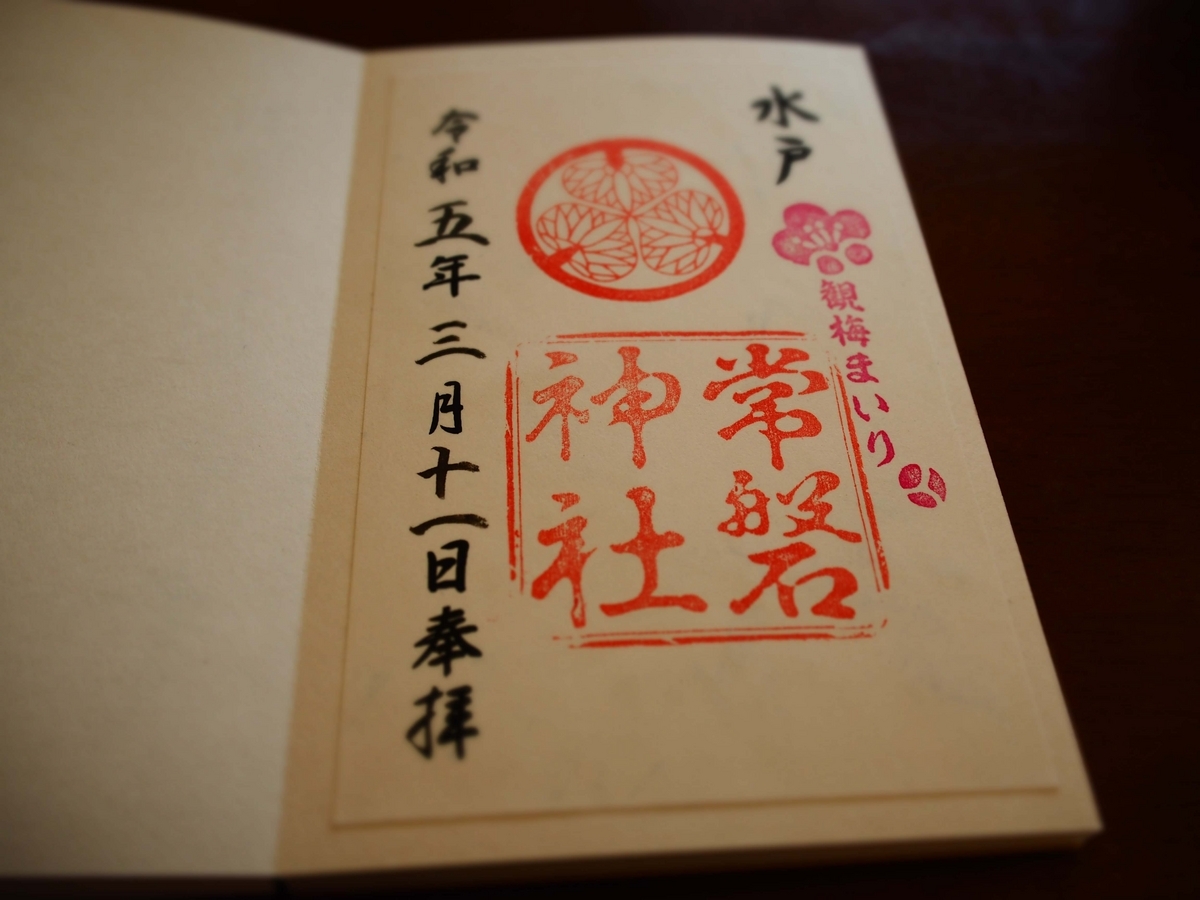 水戸
観梅まいり
常磐
神社
令和五年三月十一日奉拝